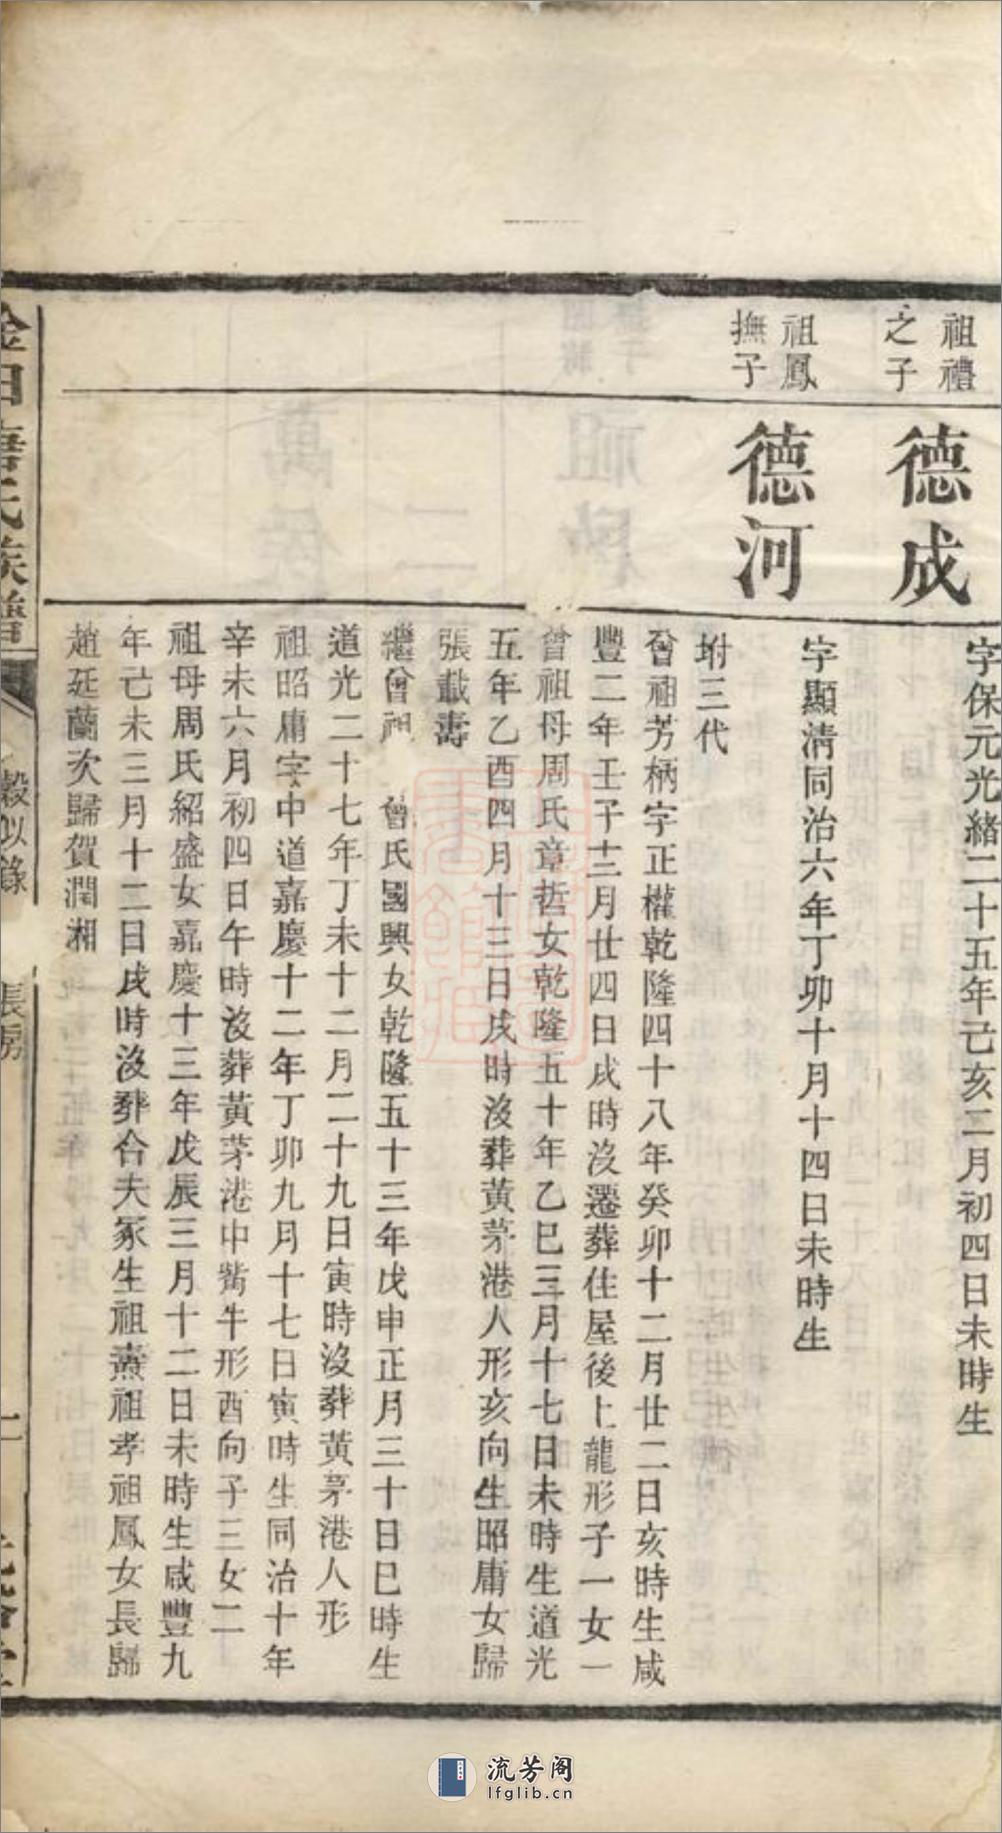 祖禮
之子
德成
字保元光緒二十五年己亥二月初四日未時生
祖鳳
撫子
德河
字顯清同治六年丁卯十月十四日未時生
坿三代
曾祖芳柄字正權乾隆四十八年癸卯十二月廿二日亥時生咸
豐二年壬子十二月廿四日戌時沒遷葬住屋後上龍形子一女一
曾祖母周氏章哲女乾隆五十年乙巳三月十七日未時生道光
五年乙酉四月十三日戌時沒葬黃茅港人形亥向生昭庸女歸
張載壽
繼曾祖 曾氏國興女乾隆五十三年戊申正月三十日巳時生
道光二十七年丁未十二月二十九日寅時沒葬黃茅港人形
祖昭庸字中道嘉慶十二年丁卯九月十七日寅時生同治十年
辛未六月初四日午時沒葬黃茅港中黨牛形酉向子三女二
祖母周氏紹盛女嘉慶十三年戊辰三月十二日未時生咸豐九
年己未三月十二日戌時沒葬合夫冢生祖燾祖孝祖鳳女長歸
趙廷蘭次歸賀潤湘
金田唐氏族譜
穀似錄
長房
流芳阁
lfglib.cn